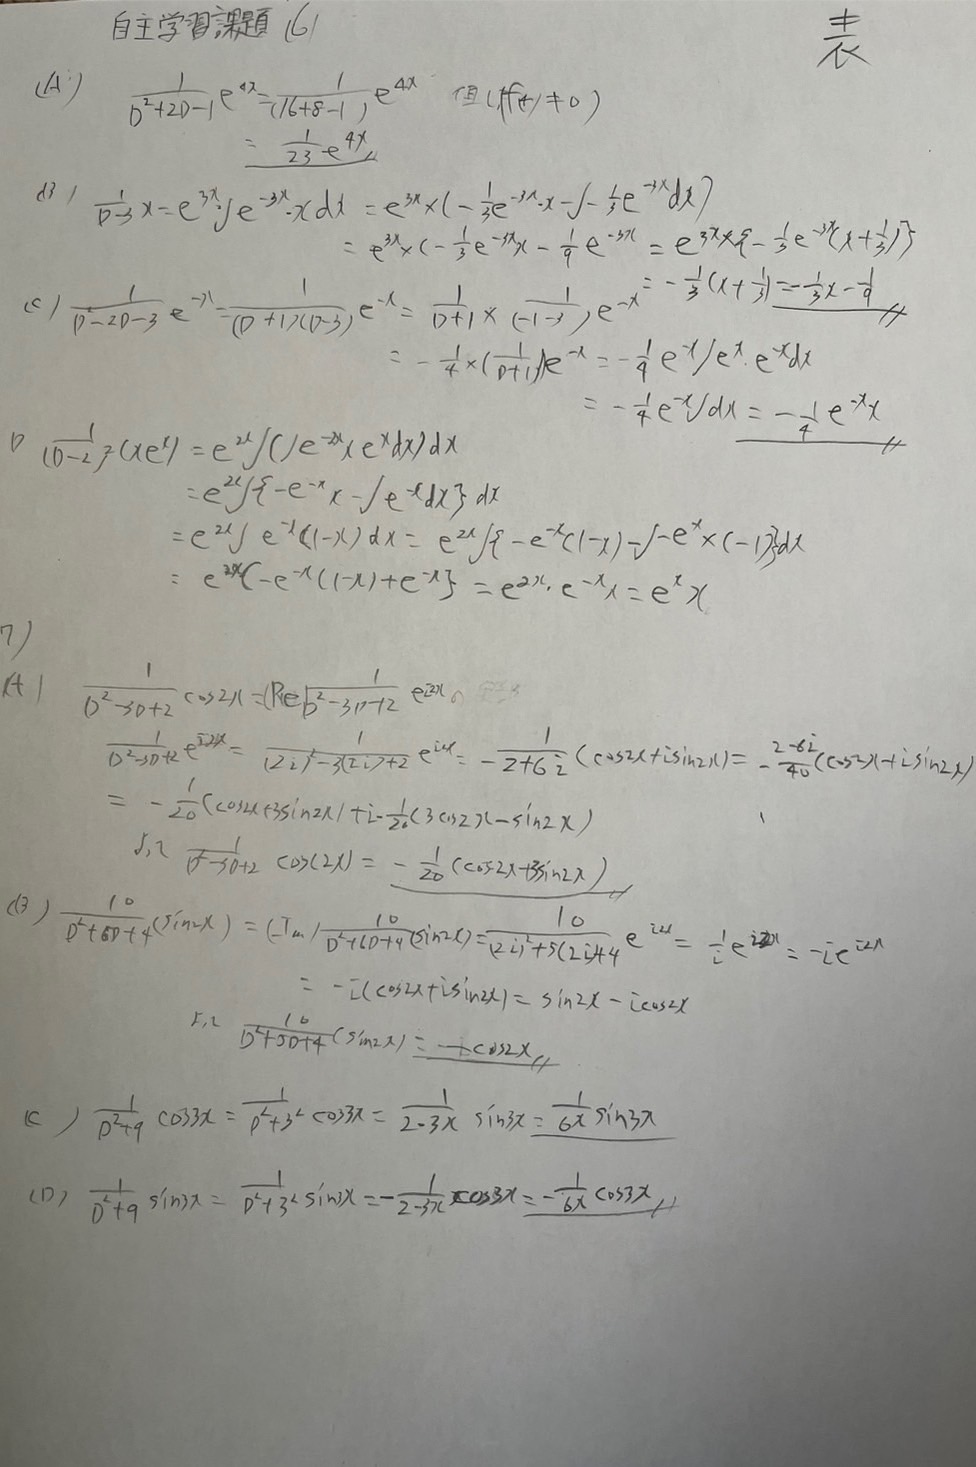 自主学習課題 (6)
表
(A) 1/(D²+2D-1) e^{4x} = 1/(16+8-1) e^{4x} 但(f(4)≠0)
= 1/23 e^{4x}
(B) 1/(D-3) x = e^{3x}・∫e^{-3x}・x dx = e^{3x}×(-1/3 e^{-3x}・x - ∫-1/3 e^{-3x}dx)
= e^{3x}×(-1/3 e^{-3x}x - 1/9 e^{-3x} = e^{3x}×{-1/3 e^{-3x}(x+1/3)}
= -1/3(x+1/3) = -1/3x - 1/9
(C) 1/(D²-2D-3) e^{-x} = 1/((D+1)(D-3)) e^{-x} = 1/(D+1) × 1/(-1-3) e^{-x}
= -1/4×(1/(D+1))e^{-x} = -1/4 e^{-x}∫e^{x}・e^{-x}dx
= -1/4 e^{-x}∫dx = -1/4 e^{-x}x
D 1/(D-2)² (xe^{x}) = e^{2x}∫(∫e^{-2x}x e^{x}dx)dx
= e^{2x}∫{-e^{-x}x - ∫e^{-x}dx}dx
= e^{2x}∫e^{-x}(1-x)dx = e^{2x}∫{-e^{-x}(1-x) - ∫-e^{x}×(-1)}dx
= e^{2x}{-e^{-x}(1-x)+e^{-x}} = e^{2x}・e^{-x}x = e^{x}x
7)
(A) 1/(D²-3D+2) cos2x = (Re) 1/(D²-3D+2) e^{i2x}
1/(D²-3D+2) e^{i2x} = 1/((2i)²-3(2i)+2) e^{i2x} = -1/(2+6i) (cos2x+isin2x) = -(2-6i)/40 (cos2x+isin2x)
= -1/20(cos2x+3sin2x)+i・1/20(3cos2x-sin2x)
よって 1/(D²-3D+2) cos(2x) = -1/20(cos2x+3sin2x)
(B) 10/(D²+5D+4) (sin2x) = (Im) 10/(D²+5D+4) (sin2x) = 10/((2i)²+5(2i)+4) e^{i2x} = 1/i e^{i2x} = -ie^{i2x}
= -i(cos2x+isin2x) = sin2x-icos2x
よって 10/(D²+5D+4) (sin2x) = -cos2x
(C) 1/(D²+9) cos3x = 1/(D²+3²) cos3x = 1/(2・3x) sin3x = 1/(6x) sin3x
(D) 1/(D²+9) sin3x = 1/(D²+3²) sin3x = -1/(2・3x) cos3x = -1/(6x) cos3x